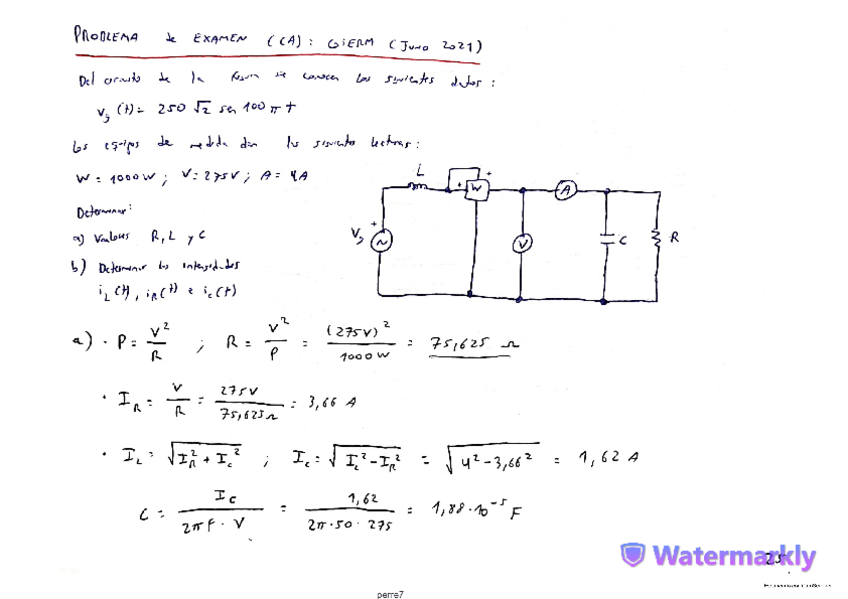 PROBLEMA de EXAMEN (CA): GIERM (Junio 2021)
Del circuito de la figura se conocen los siguientes datos:
Vg (t) = 250 √2 sen 100 π t
Los equipos de medida dan las siguientes lecturas:
W = 1000 W ; V = 275 V ; A = 4A
Determinar:
a) Valores R, L y C
b) Determinar las intensidades
iL(t), iR(t) e ic(t)
L
+
+
W
A
+
Vg
~
V
C
R
a) · P = V² / R ; R = V² / P = (275V)² / 1000 W = 75,625 Ω
· IR = V / R = 275V / 75,625Ω = 3,66 A
· IL = √(IR² + Ic²) ; Ic = √(IL² - IR²) = √(4² - 3,66²) = 1,62 A
C = Ic / (2πf · V) = 1,62 / (2π · 50 · 275) = 1,88 · 10⁻⁵ F
Watermarkly
25
perre7